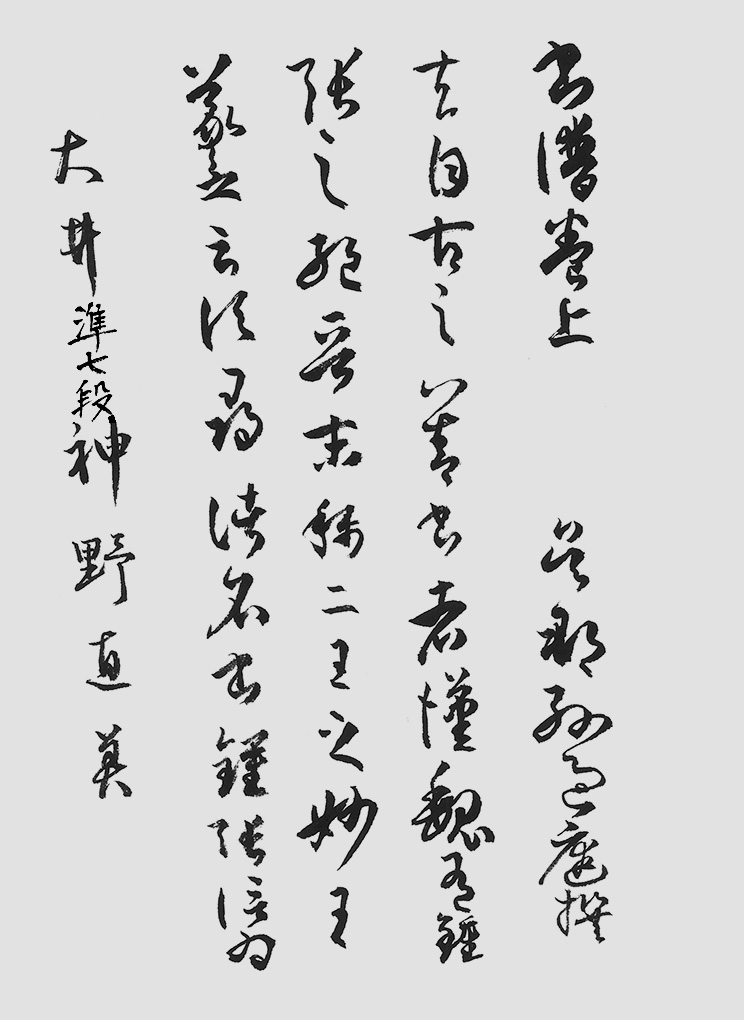 書譜卷上 吳郡孫過庭撰
夫自古之善書者漢魏有鍾
張之絶晉末稱二王之妙王
羲之云頃尋諸名書鍾張信為
大井準七段神野直美